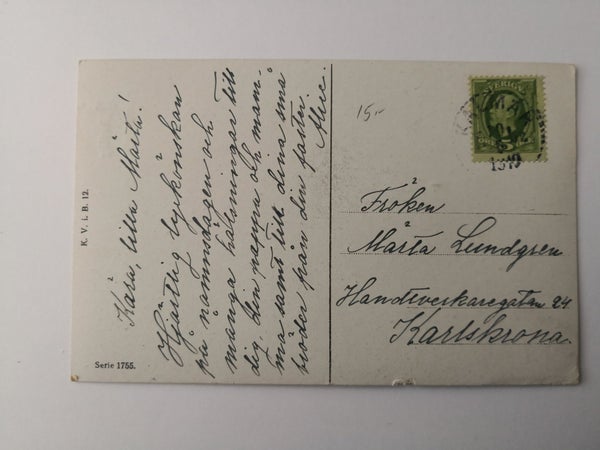 Kära, lilla Märta!
Hjärtlig lyckönskan
på namnsdagen och
många hälsningar till
dig din pappa och mam-
ma samt till dina små
bröder från din faster
Alice.
K. V. i. B. 12.
Serie 1755.
15.-
SVERIGE
KALMAR
1910
Fröken
Märta Lundgren
Handtverkaregatan 24
Karlskrona.